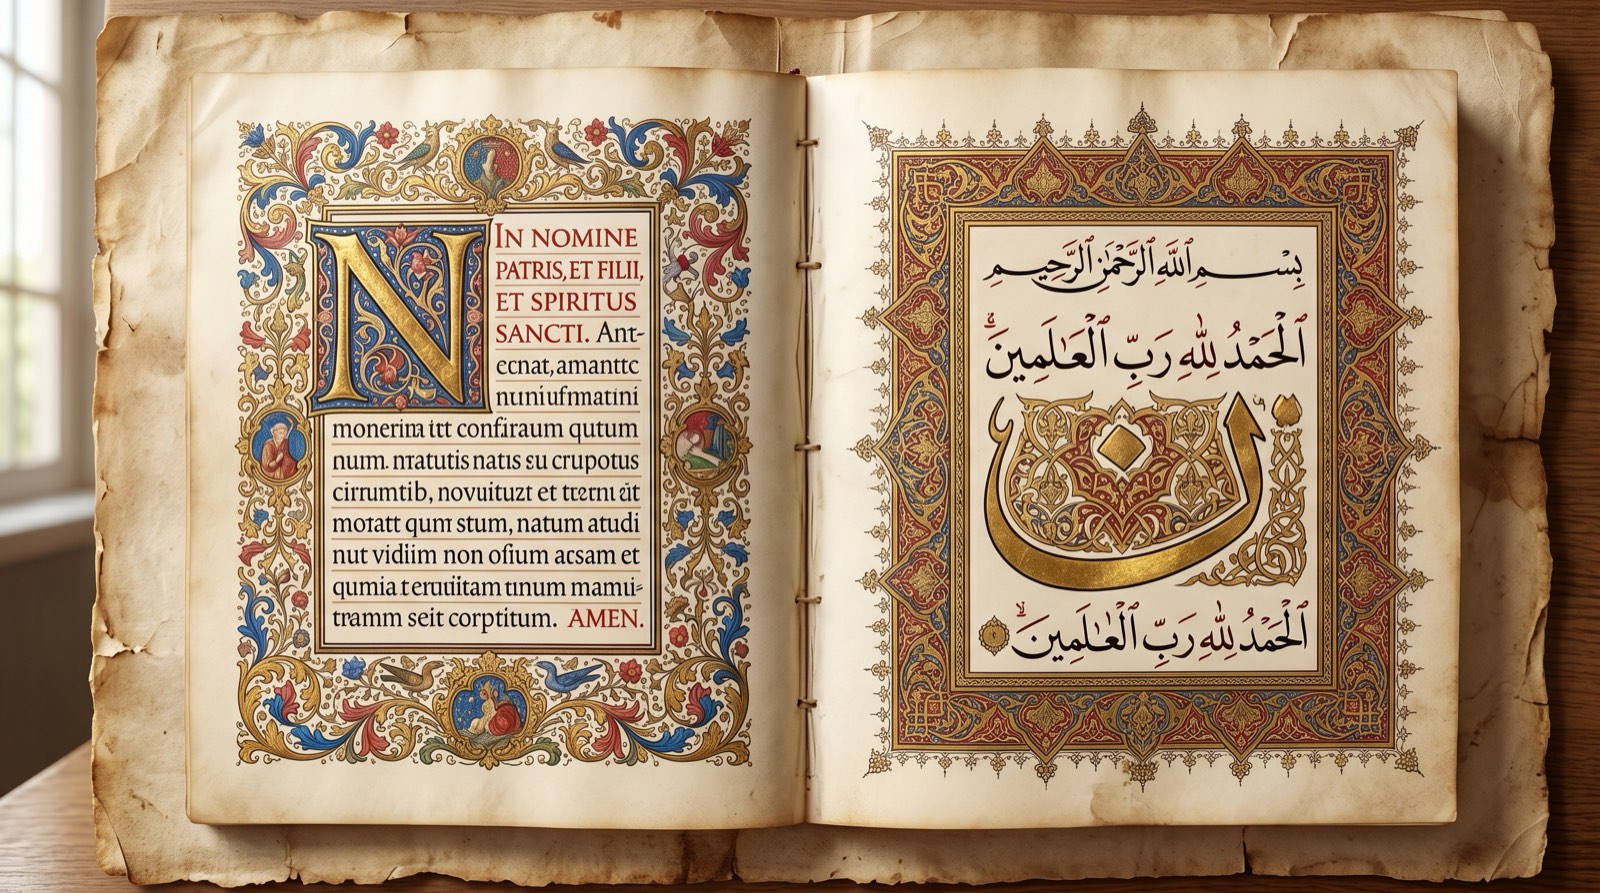 N
IN NOMINE
PATRIS, ET FILII,
ET SPIRITUS
SANCTI. Ant-
ecnat, amanttc
nuniufmatini
monerina ttt confiraum qutum
num. nratutis natis su crupotus
cirrumtib, novuituzt et tternt eit
motatt qunr stum, natum atudi
nut vidiim non ofium atsam et
qumia teruuitam tunum mamu-
tramm seit corptitum. AMEN.
بِسْمِ اللَّهِ الرَّحْمَٰنِ الرَّحِيمِ
الْحَمْدُ لِلَّهِ رَبِّ الْعَالَمِينَ
ن
الْحَمْدُ لِلَّهِ رَبِّ الْعَالَمِينَ